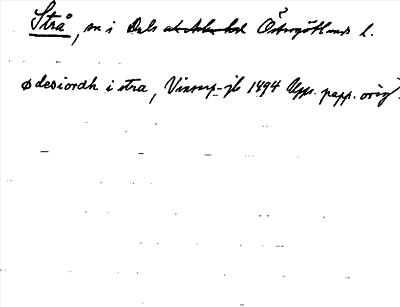 Strå, sn i Dals Östergötlands l.
ødesiordh i stra, Vinorp-jb 1494 Upps. papp. orig.